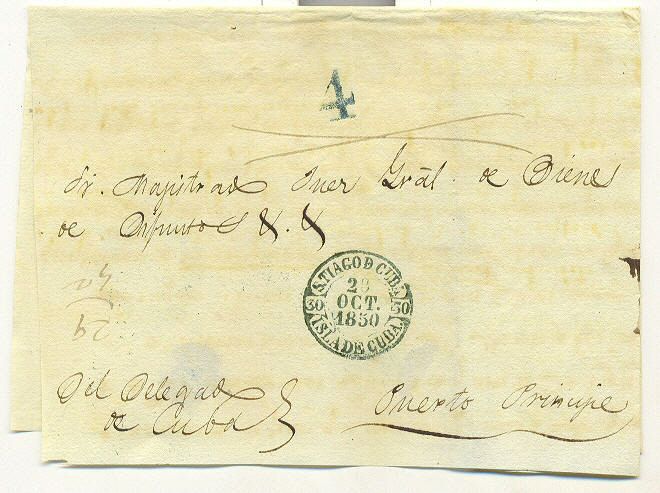 4
Sr. Magistrado Juez Gral. de Bienes
de Difuntos & &
S.TIAGO D CUBA
30 30
OCT.
1850
ISLA DE CUBA.
Del Delegado
de Cuba
Puerto Principe